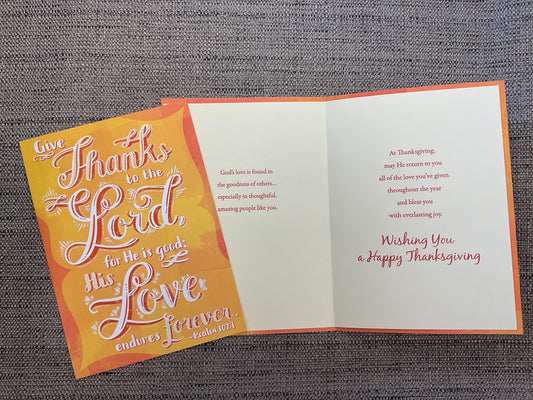 Give
Thanks
to the
Lord,
for He is good;
His
Love
endures forever.
-Psalm 107:1
God's love is found in
the goodness of others...
especially in thoughtful,
amazing people like you.
At Thanksgiving,
may He return to you
all of the love you've given
throughout the year
and bless you
with everlasting joy.
Wishing You
a Happy Thanksgiving